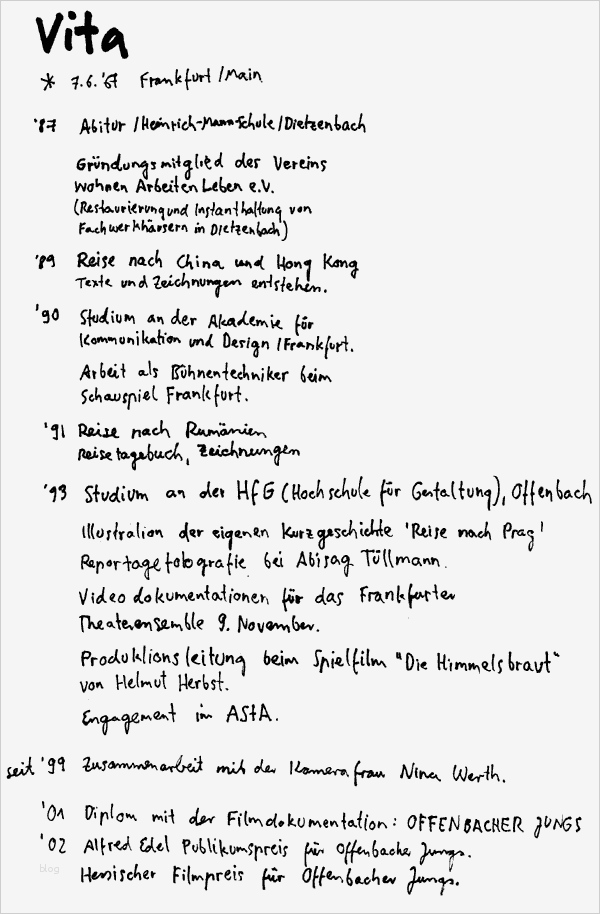 Vita
* 7.6.'67 Frankfurt/Main
'87 Abitur/Heinrich-Mann-Schule/Dietzenbach
Gründungsmitglied des Vereins
Wohnen Arbeiten Leben e.V.
(Restaurierung und Instanthaltung von
Fachwerkhäusern in Dietzenbach)
'89 Reise nach China und Hong Kong
Texte und Zeichnungen entstehen.
'90 Studium an der Akademie für
Kommunikation und Design/Frankfurt.
Arbeit als Bühnentechniker beim
Schauspiel Frankfurt.
'91 Reise nach Rumänien
Reisetagebuch, Zeichnungen
'93 Studium an der HfG (Hochschule für Gestaltung), Offenbach
Illustration der eigenen Kurzgeschichte 'Reise nach Prag'
Reportagefotografie bei Abisag Tüllmann.
Videodokumentationen für das Frankfurter
Theaterensemble 9. November.
Produktionsleitung beim Spielfilm "Die Himmelsbraut"
von Helmut Herbst.
Engagement im AStA.
seit '99 Zusammenarbeit mit der Kamerafrau Nina Werth.
'01 Diplom mit der Filmdokumentation: OFFENBACHER JUNGS
'02 Alfred Edel Publikumspreis für Offenbacher Jungs.
blog
Hessischer Filmpreis für Offenbacher Jungs.